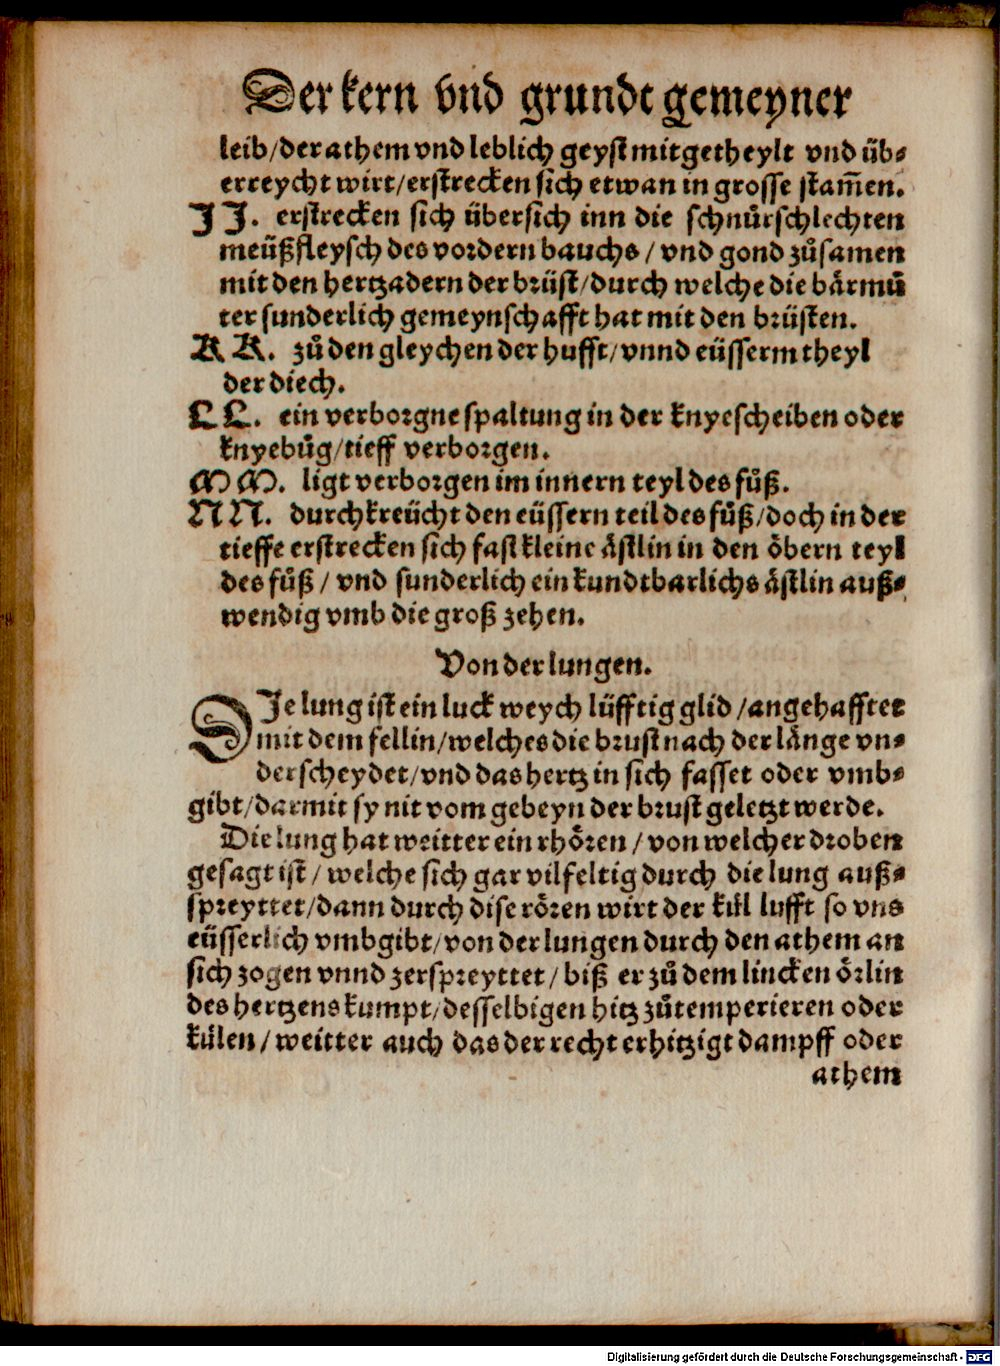 Der kern vnd grundt gemeyner
leib/der athem vnd leblich geyst mitgetheylt vnd üb⸗
erreycht wirt/erstrecken sich etwan in grosse stam̃en.
J J. erstrecken sich übersich inn die schnůrschlechten
meüßfleysch des vordern bauchs / vnd gond zůsamen
mit den hertzadern der brüst/durch welche die bärmů
ter sunderlich gemeynschafft hat mit den brüsten.
K K. zů den gleychen der hufft/vnnd eüsserm theyl
der diech.
L L. ein verborgne spaltung in der knyescheiben oder
knyebůg/tieff verborgen.
M M. ligt verborgen im innern teyl des fůß.
N N. durchkreücht den eüssern teil des fůß/doch in der
tieffe erstrecken sich fast kleine ästlin in den öbern teyl
des fůß / vnd sunderlich ein kundtbarlichs ästlin auß⸗
wendig vmb die groß zehen.
Von der lungen.
DJe lung ist ein luck weych lüfftig glid /angehafftet
mit dem fellin/welches die brust nach der länge vn⸗
derscheydet/vnd das hertz in sich fasset oder vmb⸗
gibt/darmit sy nit vom gebeyn der brust geletzt werde.
Die lung hat weitter ein rhören / von welcher droben
gesagt ist / welche sich gar vilfeltig durch die lung auß⸗
spreyttet/dann durch dise rören wirt der kül lufft so vns
eüsserlich vmbgibt/von der lungen durch den athem an
sich zogen vnnd zerspreyttet / biß er zů dem lincken örlin
des hertzens kumpt/desselbigen hitz zůtemperieren oder
külen / weitter auch das der recht erhitzigt dampff oder
athem
Digitalisierung gefördert durch die Deutsche Forschungsgemeinschaft - DFG